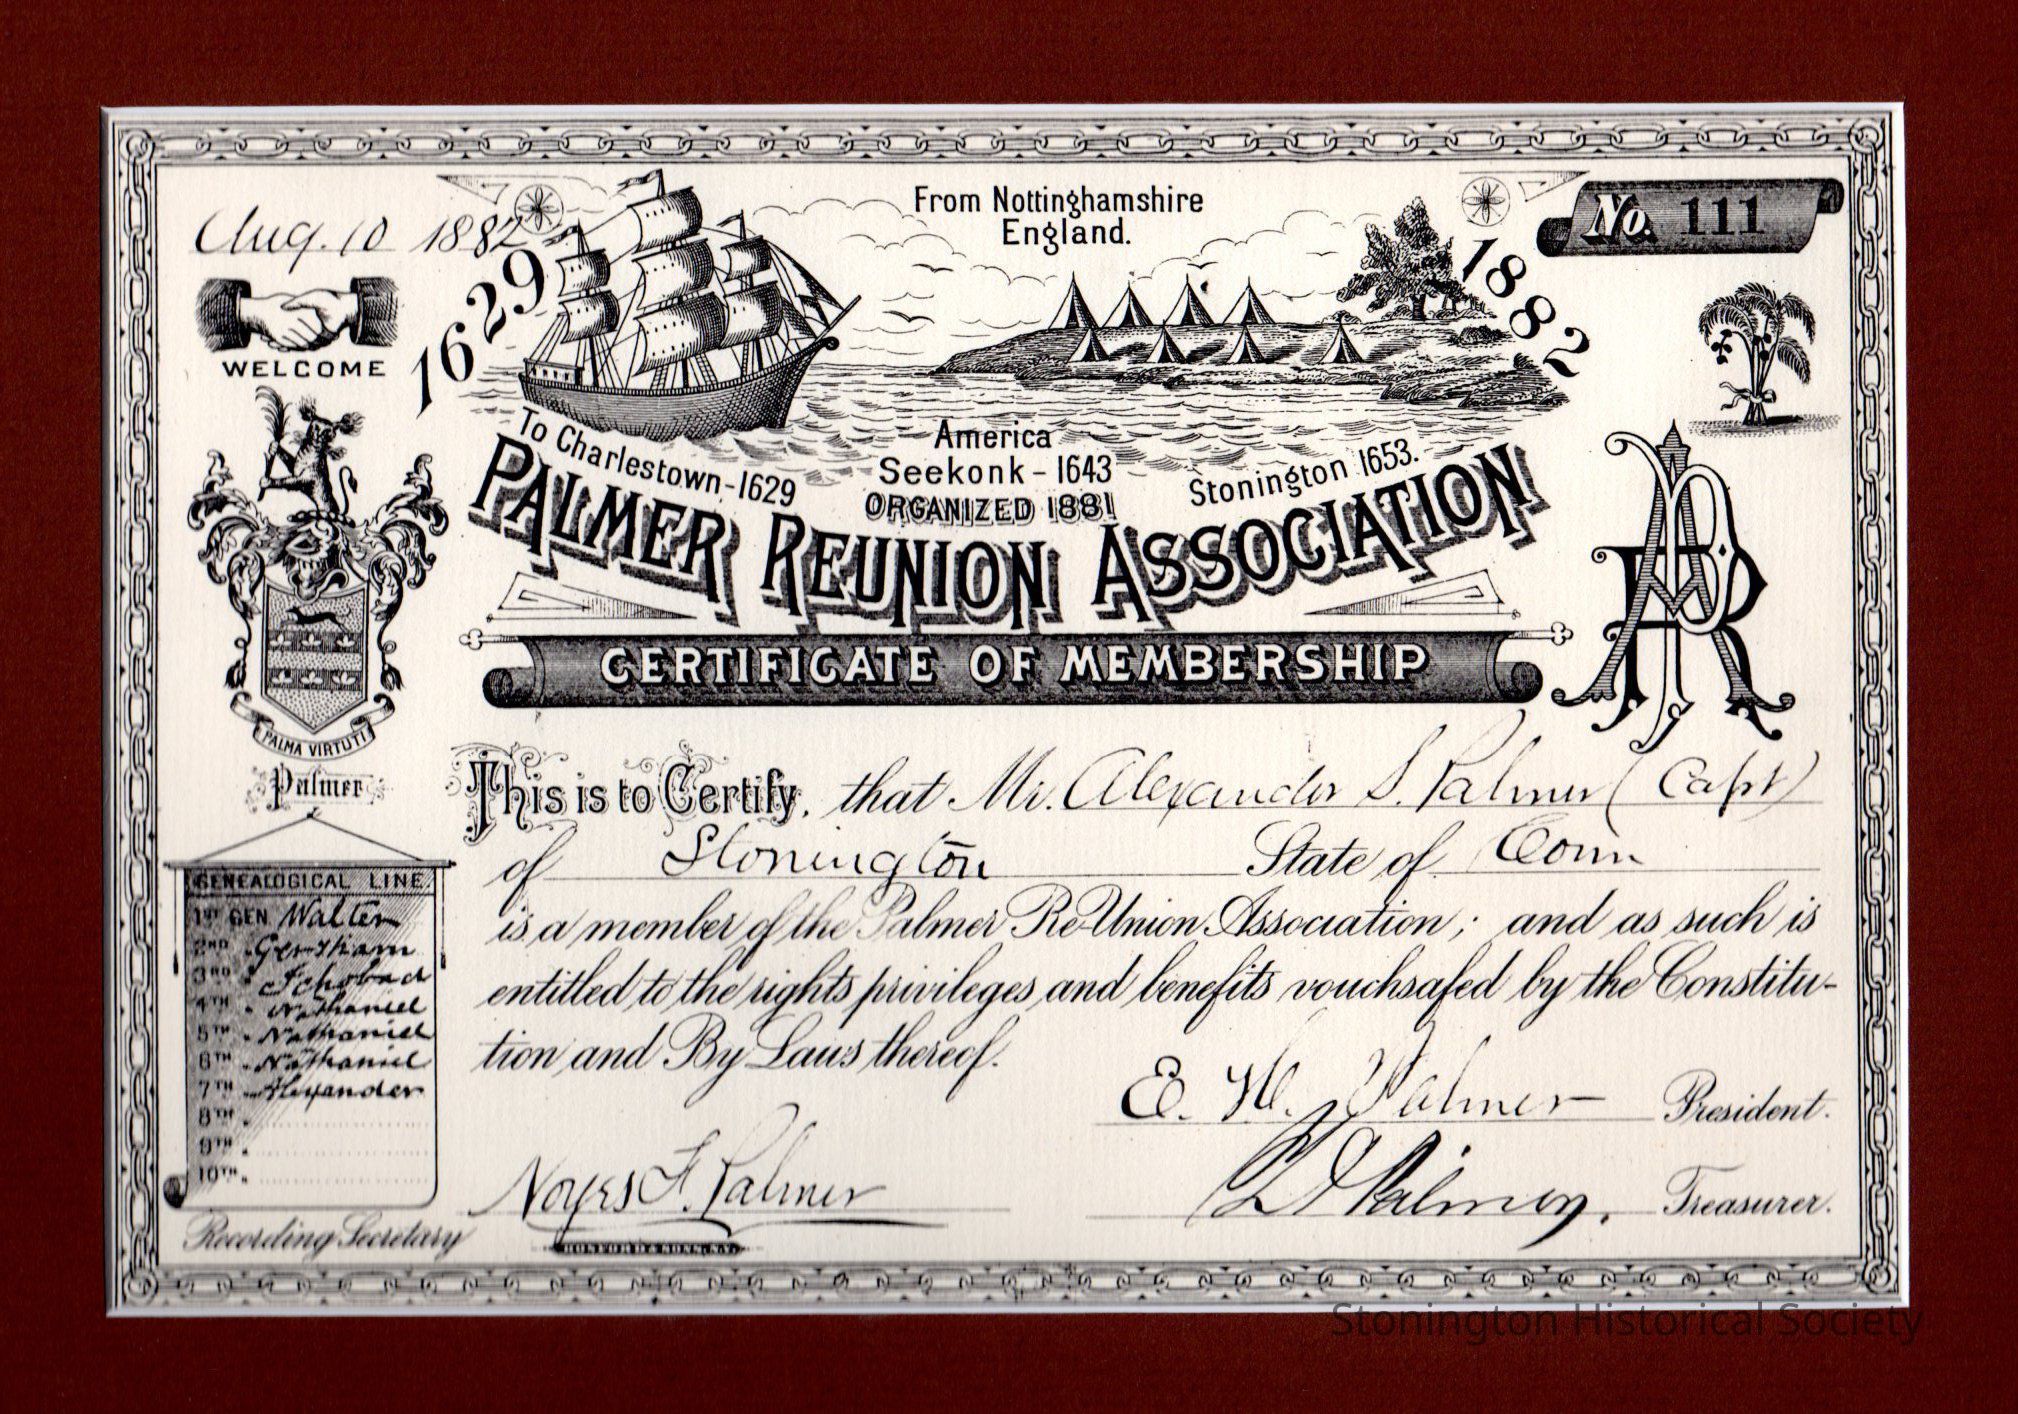 Aug. 10 1882
From Nottinghamshire
England.
No. 111
WELCOME
1629
1882
To Charlestown-1629
America
Seekonk-1643
Stonington 1653.
ORGANIZED 1881
PALMER REUNION ASSOCIATION
CERTIFICATE OF MEMBERSHIP
APR
PALMA VIRTUTI
Palmer
This is to Certify, that Mr. Alexander S. Palmer (Capt)
of Stonington State of Conn
is a member of the Palmer Re-Union Association; and as such is
entitled to the rights privileges and benefits vouchsafed by the Constitu-
tion and By Laws thereof.
GENEALOGICAL LINE.
1ST GEN. Walter
2ND " Gersham
3RD " Ichobad
4TH " Nathaniel
5TH " Nathaniel
6TH " Nathaniel
7TH " Alexander
8TH "
9TH "
10TH "
E. H. Palmer President.
Noyes F. Palmer
Palmer, Treasurer.
Recording Secretary
Stonington Historical Society